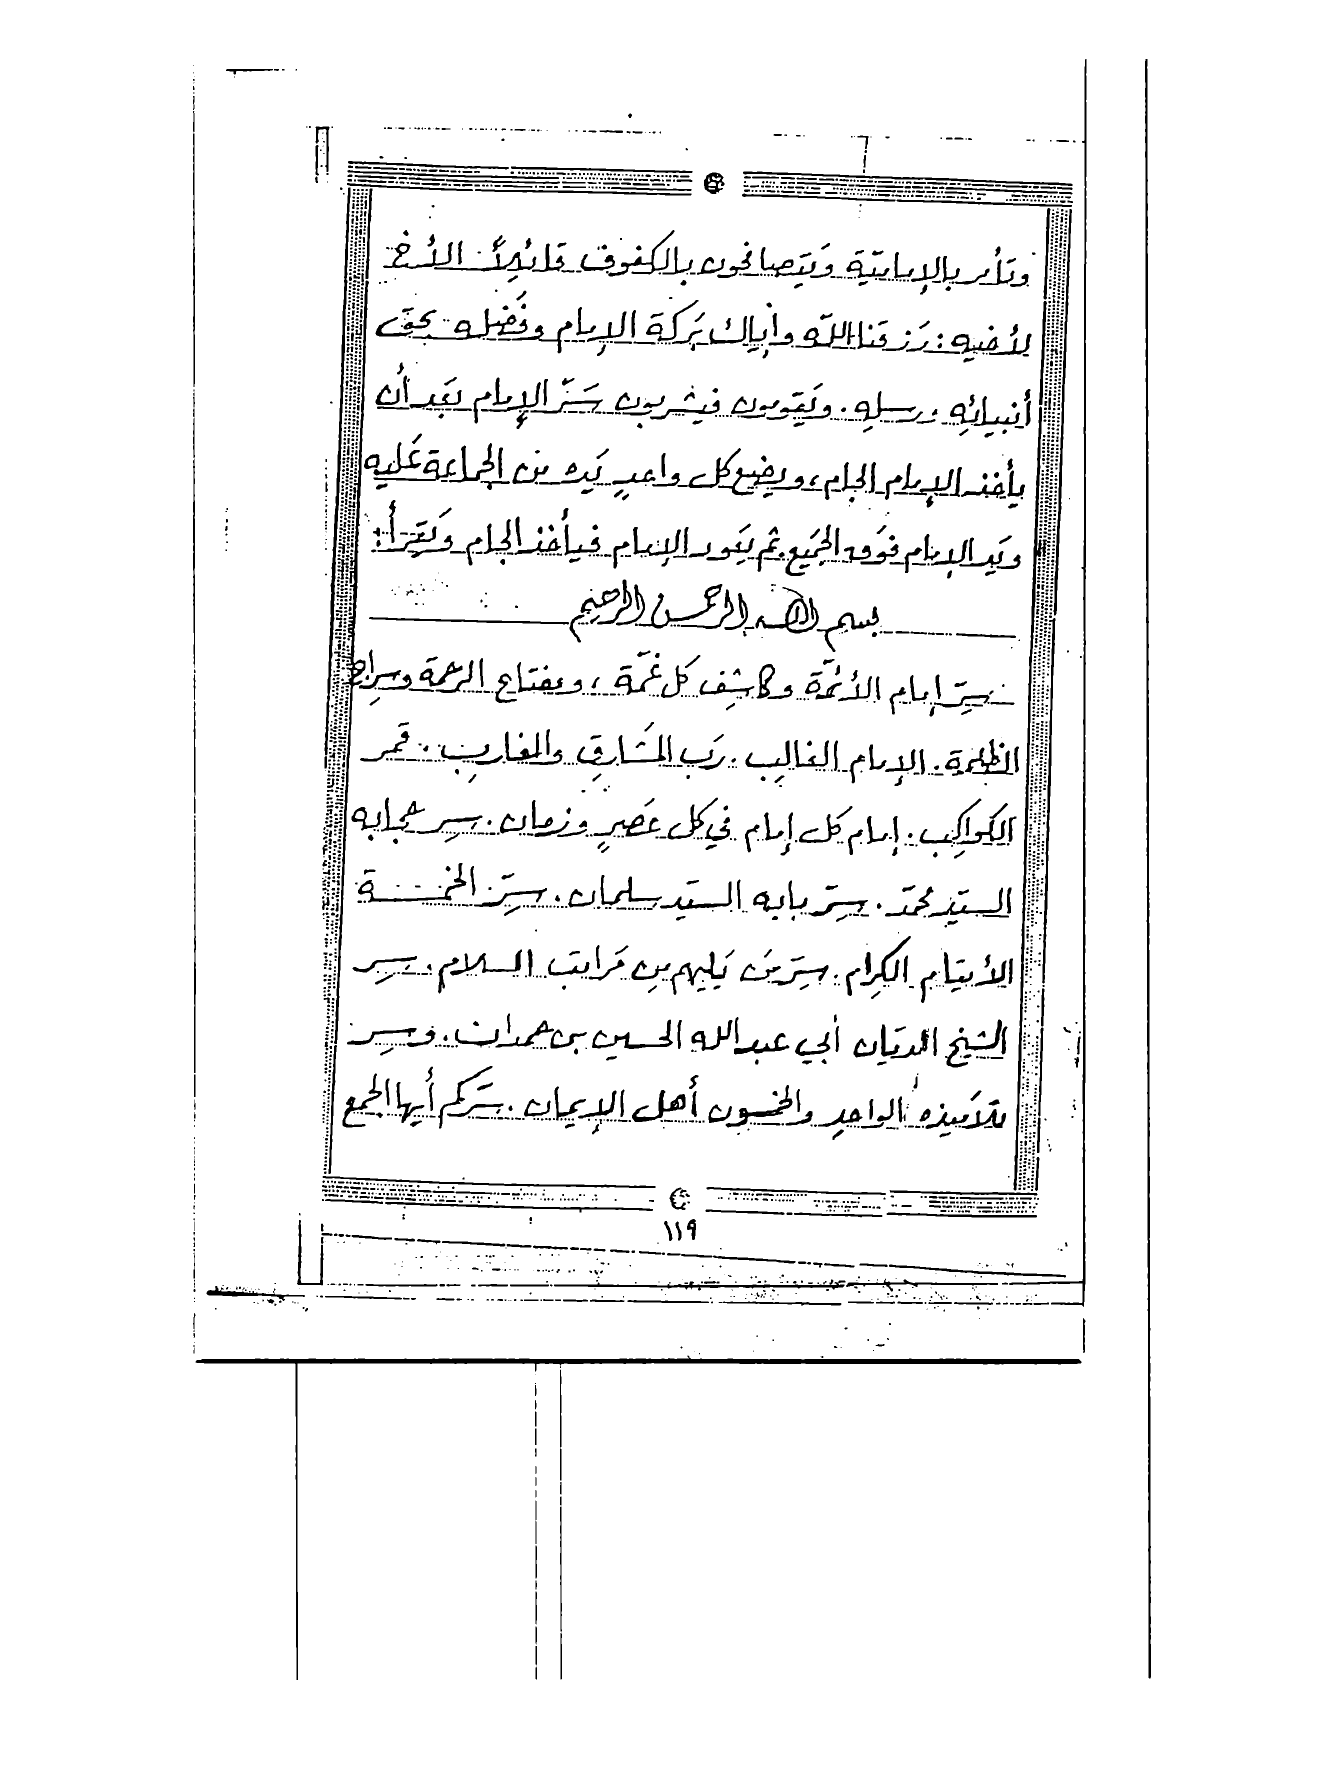 وتأمر بالإماميّة وَيَتصافحون بالكفوف قائِلاً الأخ
لأخيه : رَزقنا اللّه وإياك بَركة الإمام وفَضله بحق
أنبيائِهِ ورسلِهِ . ويَقومون فيشربون سَرّ الإمام بَعد أن
يأخذ الإمام الجام ، ويضع كل واحدٍ يَده من الجماعة عَليه
ويَد الإمام فوَق الجَميع . ثم يَعود الإمام فيأخذ الجام وَيَقرأ :
بسم الله الرحمن الرحيم
سِرّ إمام الأئمَّة وكاشِف كل غمَّة ، ومفتاح الرحمة وسِراج
الظلمة . الإمام الغالِب . رَب المَشارِق والمغارِب . قمر
الكواكِب . إمام كل إمام في كل عَصرٍ وزمان . سِر حجابه
السيّد محمّد . سِرّ بابه السيّد سلمان . سِرّ الخمسة
الأيتام الكِرام . سِرّ مَن يَليهم مِن مَراتب السلام . سِر
الشيخ الديّان أبي عبد الله الحسين بن حمدان . وسِر
تلاميذه الواحدِ والخمسون أهل الإيمان . سَرّكم أيها الجمع
١١٩